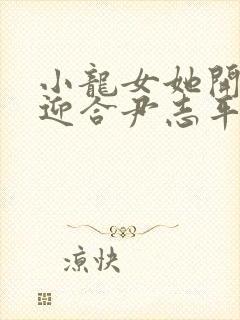 小龍女她開
迎合尹志平
凉快